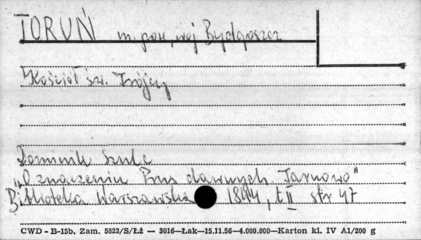 TORUŃ m. pow, woj Bydgoszcz
Kościół św. Trójcy
Dominik Szulc
"O znaczeniu Prus dawnych Tarnowo"
Biblioteka Warszawska 1844, t II str 47
CWD - B-15b, Zam. 5823/S/Łż — 3016—Łak—15.11.56—4.000.000—Karton kl. IV A1/200 g